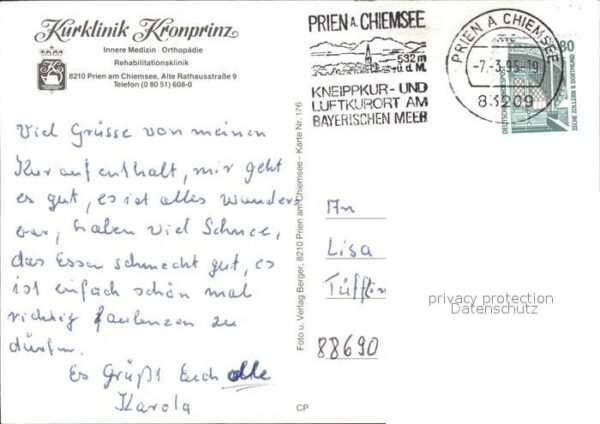 Kurklinik Kronprinz
Innere Medizin · Orthopädie
Rehabilitationsklinik
8210 Prien am Chiemsee, Alte Rathausstraße 9
Telefon (0 80 51) 608-0
Viel Grüsse von meinen
Kuraufenthalt, mir geht
es gut, es ist alles wunder
bar, haben viel Schnee,
das Essen schmeckt gut, es
ist einfach schön mal
richtig faulenzen zu
dürfen.
Es Grüßt Euch alle
Karola
Foto u. Verlag Berger, 8210 Prien am Chiemsee - Karte Nr. 176
CP
PRIEN A. CHIEMSEE
532m
ü.d.M.
KNEIPPKUR- UND
LUFTKURORT AM
BAYERISCHEN MEER
PRIEN A CHIEMSEE
-7.-3.95-19
83209
80
DEUTSCHE BUNDESPOST
ZECHE ZOLLERN II DORTMUND
An
Lisa
88690
privacy protection
Datenschutz